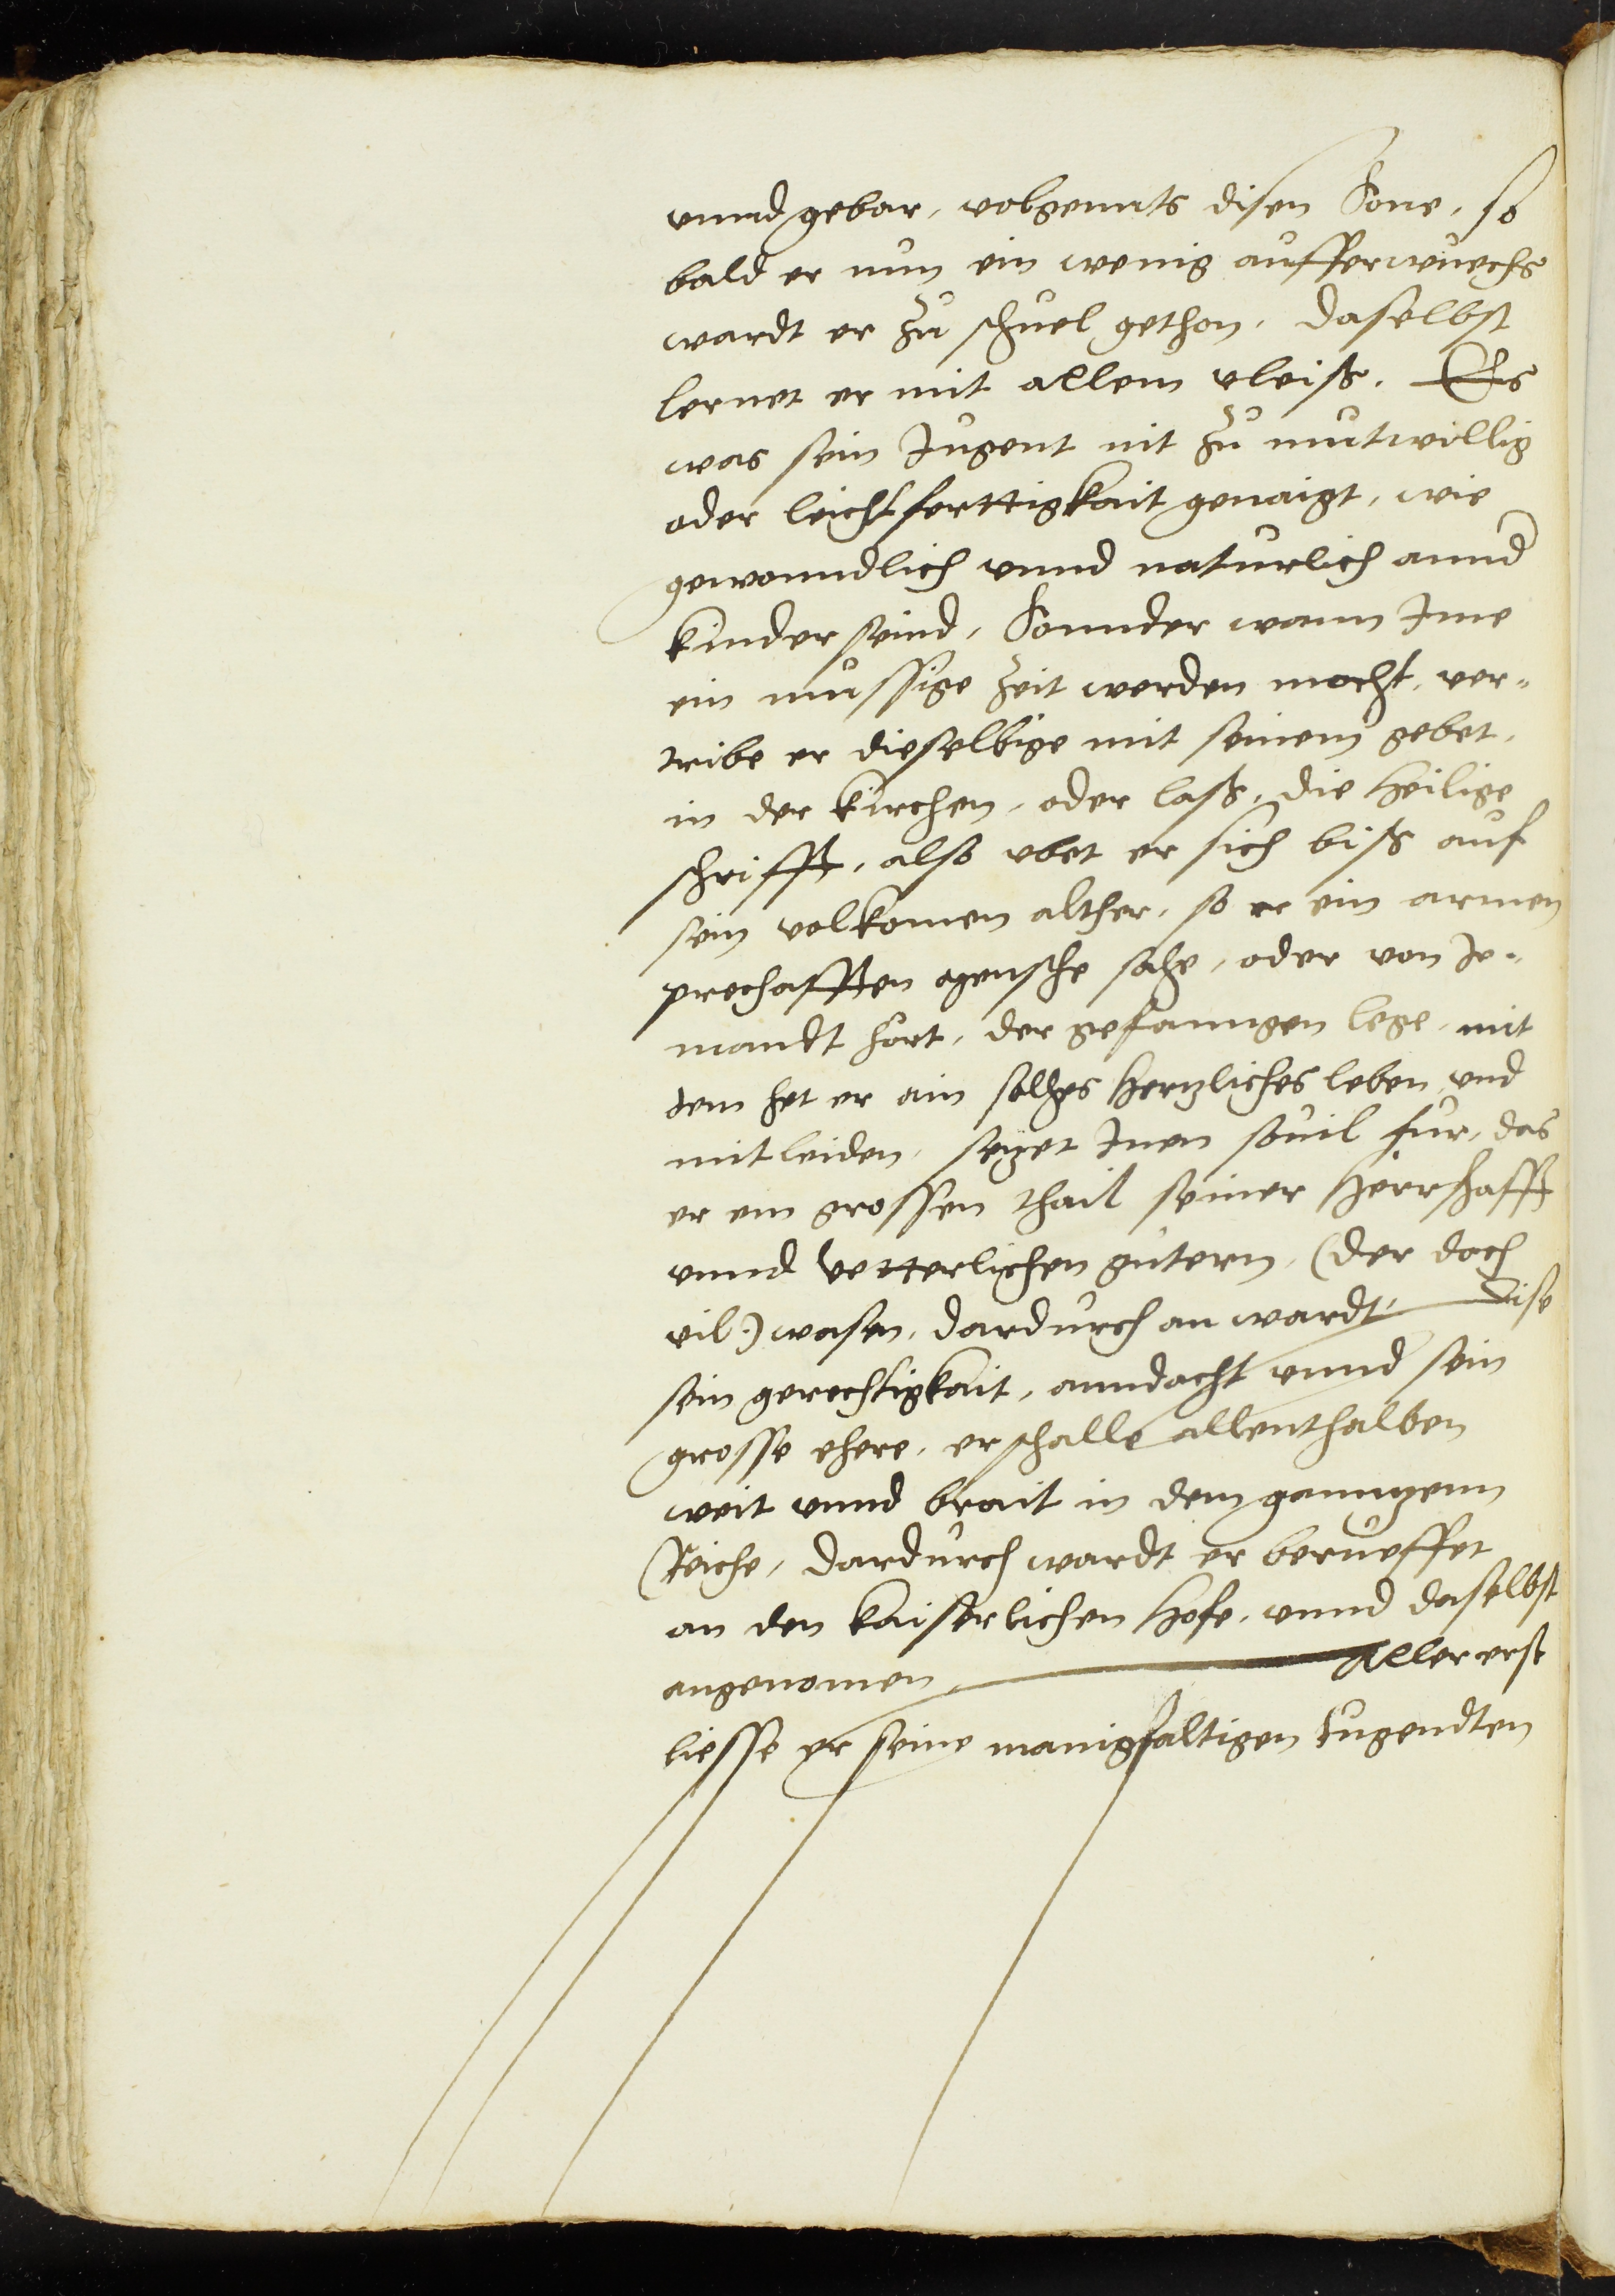 unnd gebar, volgennts disen Sone, so
bald er nun ein wenig aufferwuechs
wardt er zu schuel gethon, daselbst
lernet er mit allem vleiß. Es
was sein Jugent nit zu mutwillig
oder leichtferttigkait genaigt, wie
gewonndlich unnd naturlich annd
kinder seind, Sonnder wann Ime
ein mussige zeit werden mocht, ver-
tribe er dieselbige mit seinem gebet,
in der kirchen, oder laß, die heilige
schrifft, also ubet er sich biß auf
sein volkomen alther, so er ein armen
prechafften mensche sahe, oder von Je-
mandt hort, der gefanngen lege, mit
dem het er ain solhes hertzliches leben und
mitleiden, setzet Inen souil fur, das
er ein grossen thail seiner herrschafft
unnd Vetterlichen gutern, (der doch
vil) wasen, dardurch an wardt, Dise
sein gerechtigkait, anndacht unnd sein
grosse ehere, erschalle allenthalben
weit unnd brait in dem ganntzenn
Reiche, dardurch wardt er berueffet
an den kaiserlichen hofe, unnd daselbst
angenomen, Aller erst
liesse er seine manigfaltigen tugendten